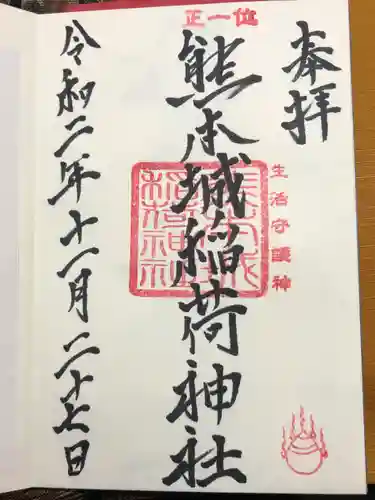 奉拝
正一位
熊本城稲荷神社
生活守護神
令和二年十一月二十七日